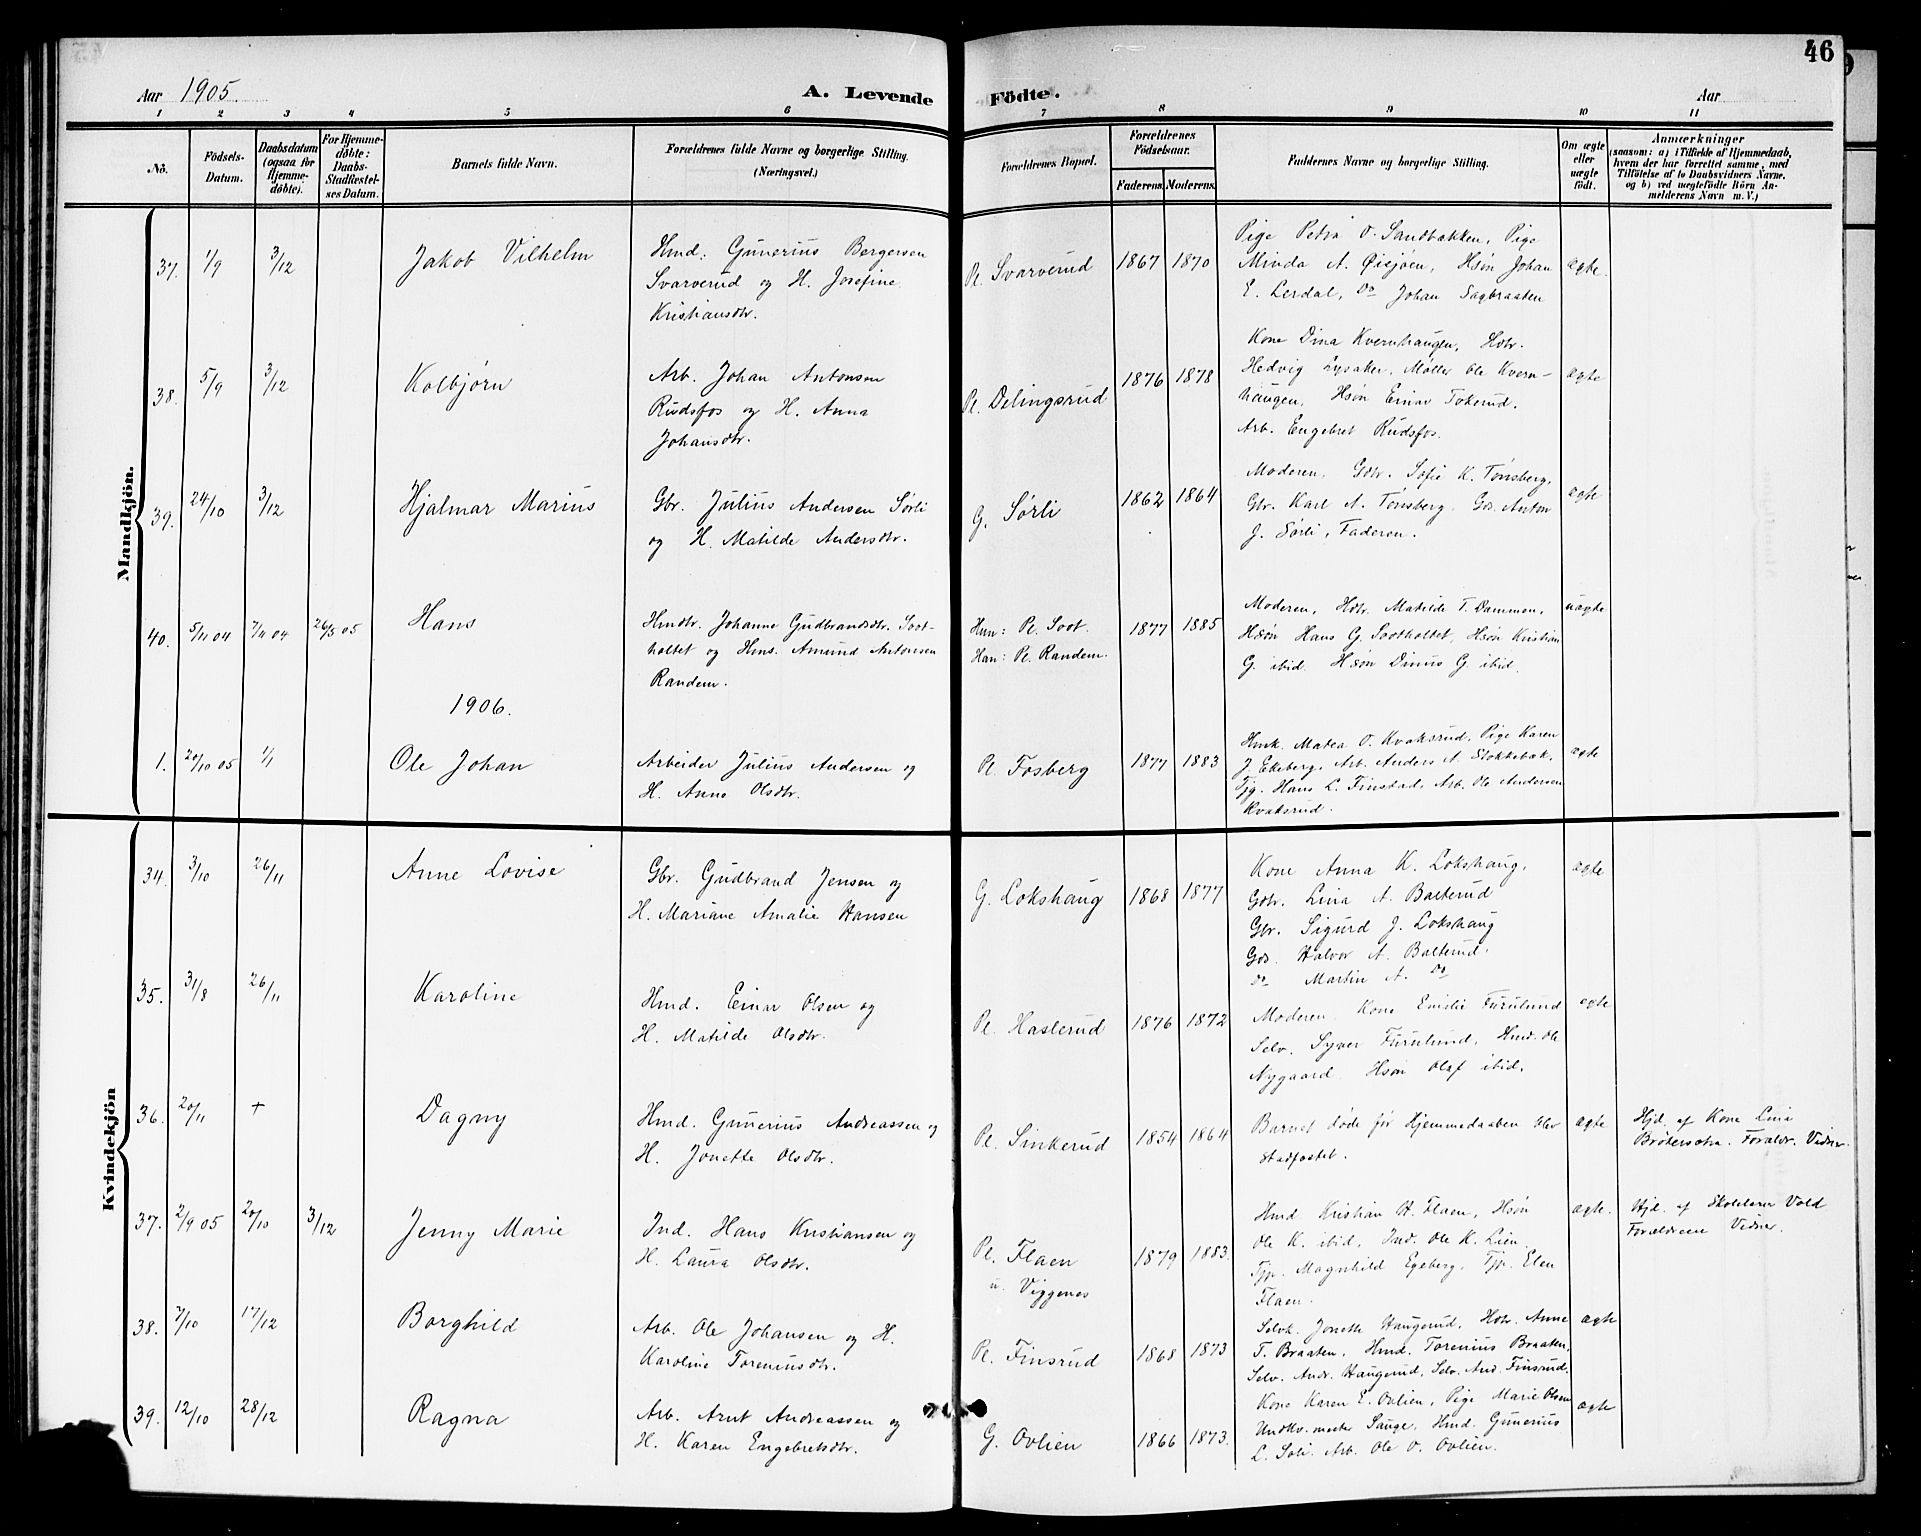 46
Aar 1905.
A. Levende Födte.
Aar
1 2 3 4 5 6 7 8 9 10 11
No.
Födsels-Datum.
Daabsdatum (ogsaa for Hjemme-döbte).
For Hjemme-döbte: Daabs-Stadfæstel-ses Datum.
Barnets fulde Navn.
Forældrenes fulde Navne og borgerlige Stilling. (Næringsvei.)
Forældrenes Bopæl.
Forældrenes Födselsaar.
Faderens. Moderens.
Faddernes Navne og borgerlige Stilling.
Om ægte eller uægte födt.
Anmærkninger
(saasom: a) i Tilfælde af Hjemmedaab,
hvem der har forrettet samme, med
Tilföielse af to Daabsvidners Navne,
og b) ved uægtefödte Börn An-
melderens Navn m. V.)
Mandkjön.
37. 1/9 3/12 Jakob Vilhelm
Hmd. Gunerius Bergersen
Svarverud og H. Josefine
Kristiansdtr.
Pl. Svarverud 1867 1870
Pige Petra O. Sandbakken, Pige
Minda A. Øisjøen, Hsøn Johan
E. Lerdal, Do Johan Sagbraaten
ægte.
38. 5/9 3/12 Kolbjørn
Arb. Johan Antonsen
Rudsfos og H. Anna
Johansdtr.
Pl. Delingsrud 1876 1878
Kone Dina Kvernhaugen, Hdtr.
Hedvig Lysaker, Møller Ole Kvern-
haugen, Hsøn Einar Tokerud,
Arb. Engebret Rudsfos.
ægte
39. 24/10 3/12 Hjalmar Marius
Gbr. Julius Andersen Sørli
og H. Matilde Andersdtr.
G. Sørli 1862 1864
Moderen, Gdtr. Sofie K. Tønsberg,
Gbr. Karl A. Tønsberg, Gds. Anton
J. Sørli, Faderen.
ægte
40. 5/11 04 7/11 04 26/3 05 Hans
Hmdtr. Johanne Gudbrandsdtr. Soot-
holtet og Hms. Amund Antonsen
Randem.
Hun: Pl. Soot.
Han: Pl. Randem.
1877 1885
Moderen, Hdtr. Matilde T. Dammen,
Hsøn Hans G. Sootholtet, Hsøn Kristian
G. ibid. Hsøn Dinus G. ibid.
uægte
1906.
1. 20/10 05 1/1 Ole Johan
Arbeider Julius Andersen og
H. Anne Olsdtr.
Pl. Fosberg 1877 1883
Hmk. Matea O. Kvaksrud, Pige Karen
J. Ekeberg, Arb. Anders A. Stokkebæk,
Tjg. Hans L. Finstad, Arb. Ole Andersen
Kvaksrud.
ægte
Kvindekjön
34. 3/10 26/11 Anne Lovise
Gbr. Gudbrand Jensen og
H. Mariane Amalie Hansen
G. Lokshaug 1868 1877
Kone Anna K. Lokshaug,
Gdtr. Lina A. Balterud
Gbr. Sigurd J. Lokshaug
Gds. Halvor A. Balterud.
Do Martin A. Do
ægte
35. 31/8 26/11 Karoline
Hmd. Einar Olsen og
H. Matilde Olsdtr.
Pl. Haslerud 1876 1872
Moderen. Kone Emilie Furulund
Selv. Syver Furulund, Hmd. Ole
Nygaard. Hsøn Olaf ibid.
ægte
36. 20/11 + Dagny
Hmd. Gunerius Andreassen og
H. Jonette Olsdtr.
Pl. Sinkerud 1854 1864
Barnet døde før Hjemmedaaben blev
stadfæstet.
ægte
Hjd. af Kone Lina
Bråtersetra. Forældr. Vidner.
37. 2/9 05 20/10 3/12 Jenny Marie
Ind. Hans Kristiansen og
H. Laura Olsdtr.
Pl. Flaen
u. Viggenes
1879 1883.
Hmd. Kristian H. Flaen, Hsøn
Ole K. ibid, Ind. Ole K. Lien
Tjp. Magnhild Egeberg, Tjp. Elen
Flaen.
ægte.
Hjd. af Skolelærer Vold
Forældrene Vidner.
38. 7/10 17/12 Borghild
Arb. Ole Johansen og H.
Karoline Toreniusdtr.
Pl. Finsrud 1868 1873
Selvk. Jonette Haugerud, Hdtr. Anne
T. Braaten, Hmd. Torenius Braaten,
Selv. Andr. Haugerud, Selv. And. Finsrud.
ægte
39. 12/10 28/12 Ragna
Arb. Arnt Andreassen og
H. Karen Engebretsdtr.
G. Ovlien 1866 1873.
Kone Karen E. Ovlien, Pige Marie Olsen
Hmd. Gunerius
L. Soli. Arb. Ole O. Ovlien.
ægte